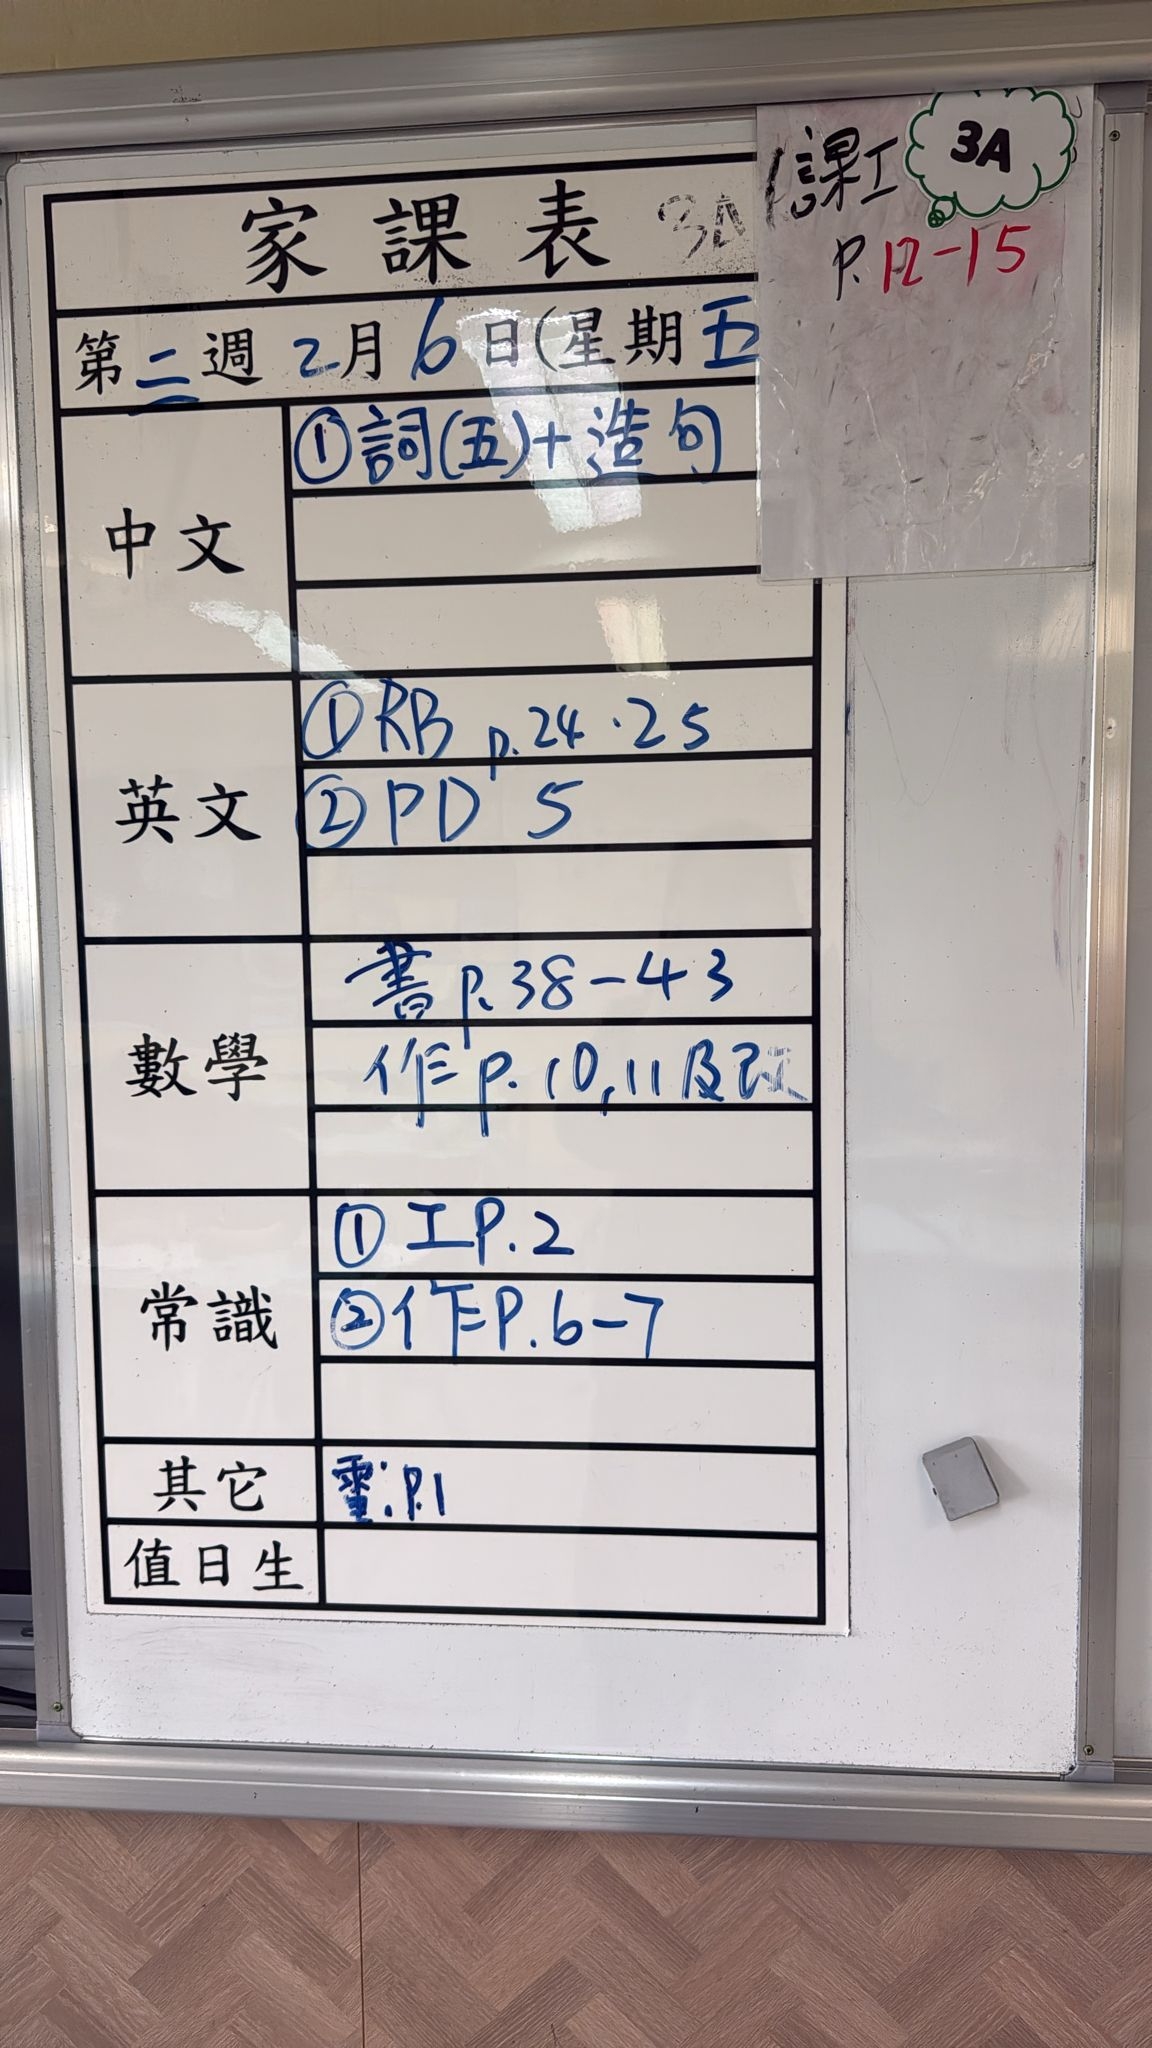 家課表 3A
課工 3A
P.12-15
第二週 2月6日(星期五
中文
①詞(五)+造句
英文
①RB p.24.25
②PD 5
數學
書p.38-43
作p.10,11及改
常識
①工P.2
②作P.6-7
其它
P.1
值日生